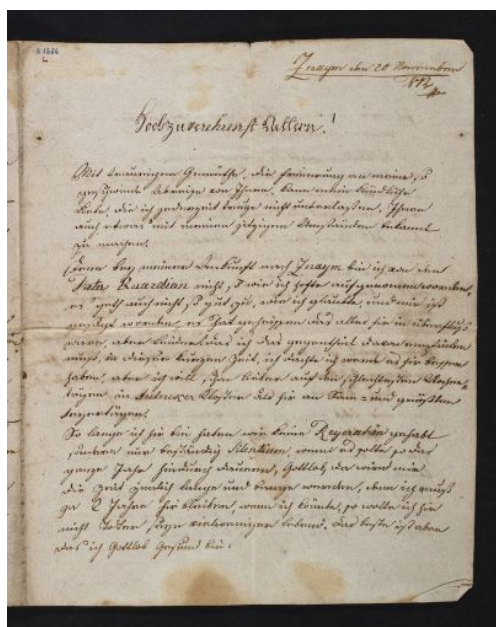 A 1886
Znaym den 20 Novembrer
812
Hochzuverehrenst Aeltern!
Mit traurigem Gemüthe, die Erinnerung an meine, so
von Ihnen, kann meine Kindliche
Liebe, die ich jederzeit trage nicht unterlassen, Ihnen
auch etwas mit meinen jetzigen Umständen bekannt
zu machen.
Denn bey meiner Ankunft nach Znaym bin ich von dem
Pater Quardian nicht so wie ich hofte aufgenommen worden,
es geth auch nicht so gut zu, wie ich glaubte, und mir ist
gesagt worden, es hat geheissen das alles hir in überfluß
ware, aber leider, das ich das gegentheil davon empfinden
muß, in dieser kurzen Zeit, ich dachte ich werde es hir besser
haben, aber ich will schon lieber auf den schlechtesten
tägen, in Kloster als hir an
So lange ich hir bin haben wir keine Regeration gehabt
sondern nur beständig Silentium, wenn es solte so das
ganze Jahr hindurch dauern, Gottlob, da wird mir
die Zeit zimlich lange und bange werden, denn ich muß
ja 2 Jahre hir bleiben, wenn ich könnte, so wolte ich hir
nicht Tödter seyn vielweniger lebend. Das beste ist aber
das ich Gottlob Gesund bin.